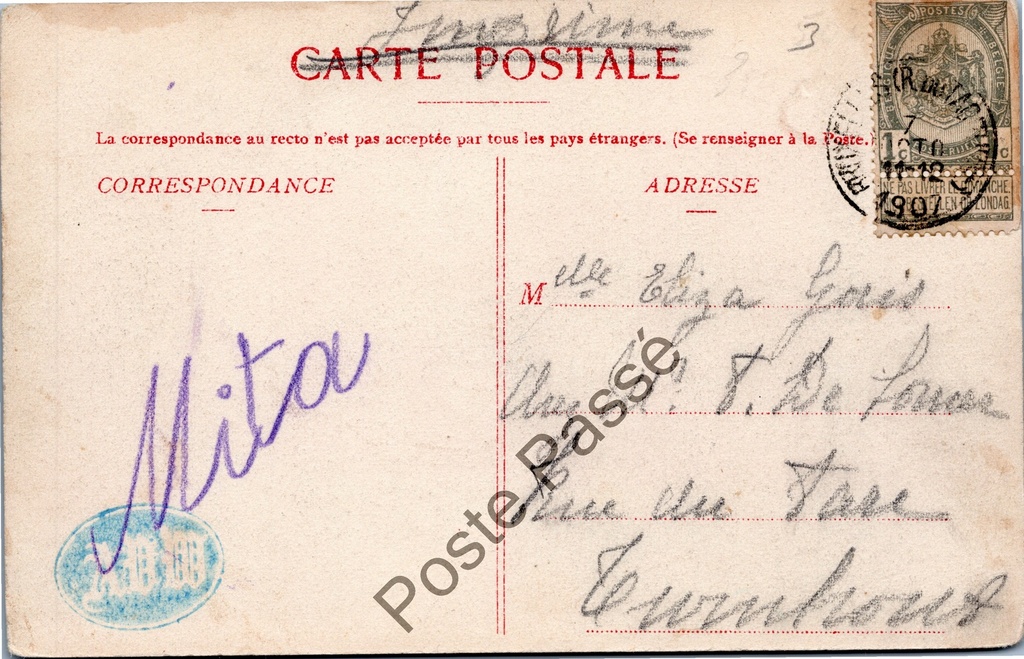 Imprimé
3
CARTE POSTALE
La correspondance au recto n'est pas acceptée par tous les pays étrangers. (Se renseigner à la Poste.)
CORRESPONDANCE
ADRESSE
POSTES
1c
NE PAS LIVRER LE DIMANCHE
NIET BESTELLEN OP ZONDAG
BRUXELLES
7
11-12
1907
Melle Eliza Goris
T. De
Rue du Parc
Turnhout
Mita
Poste Passé